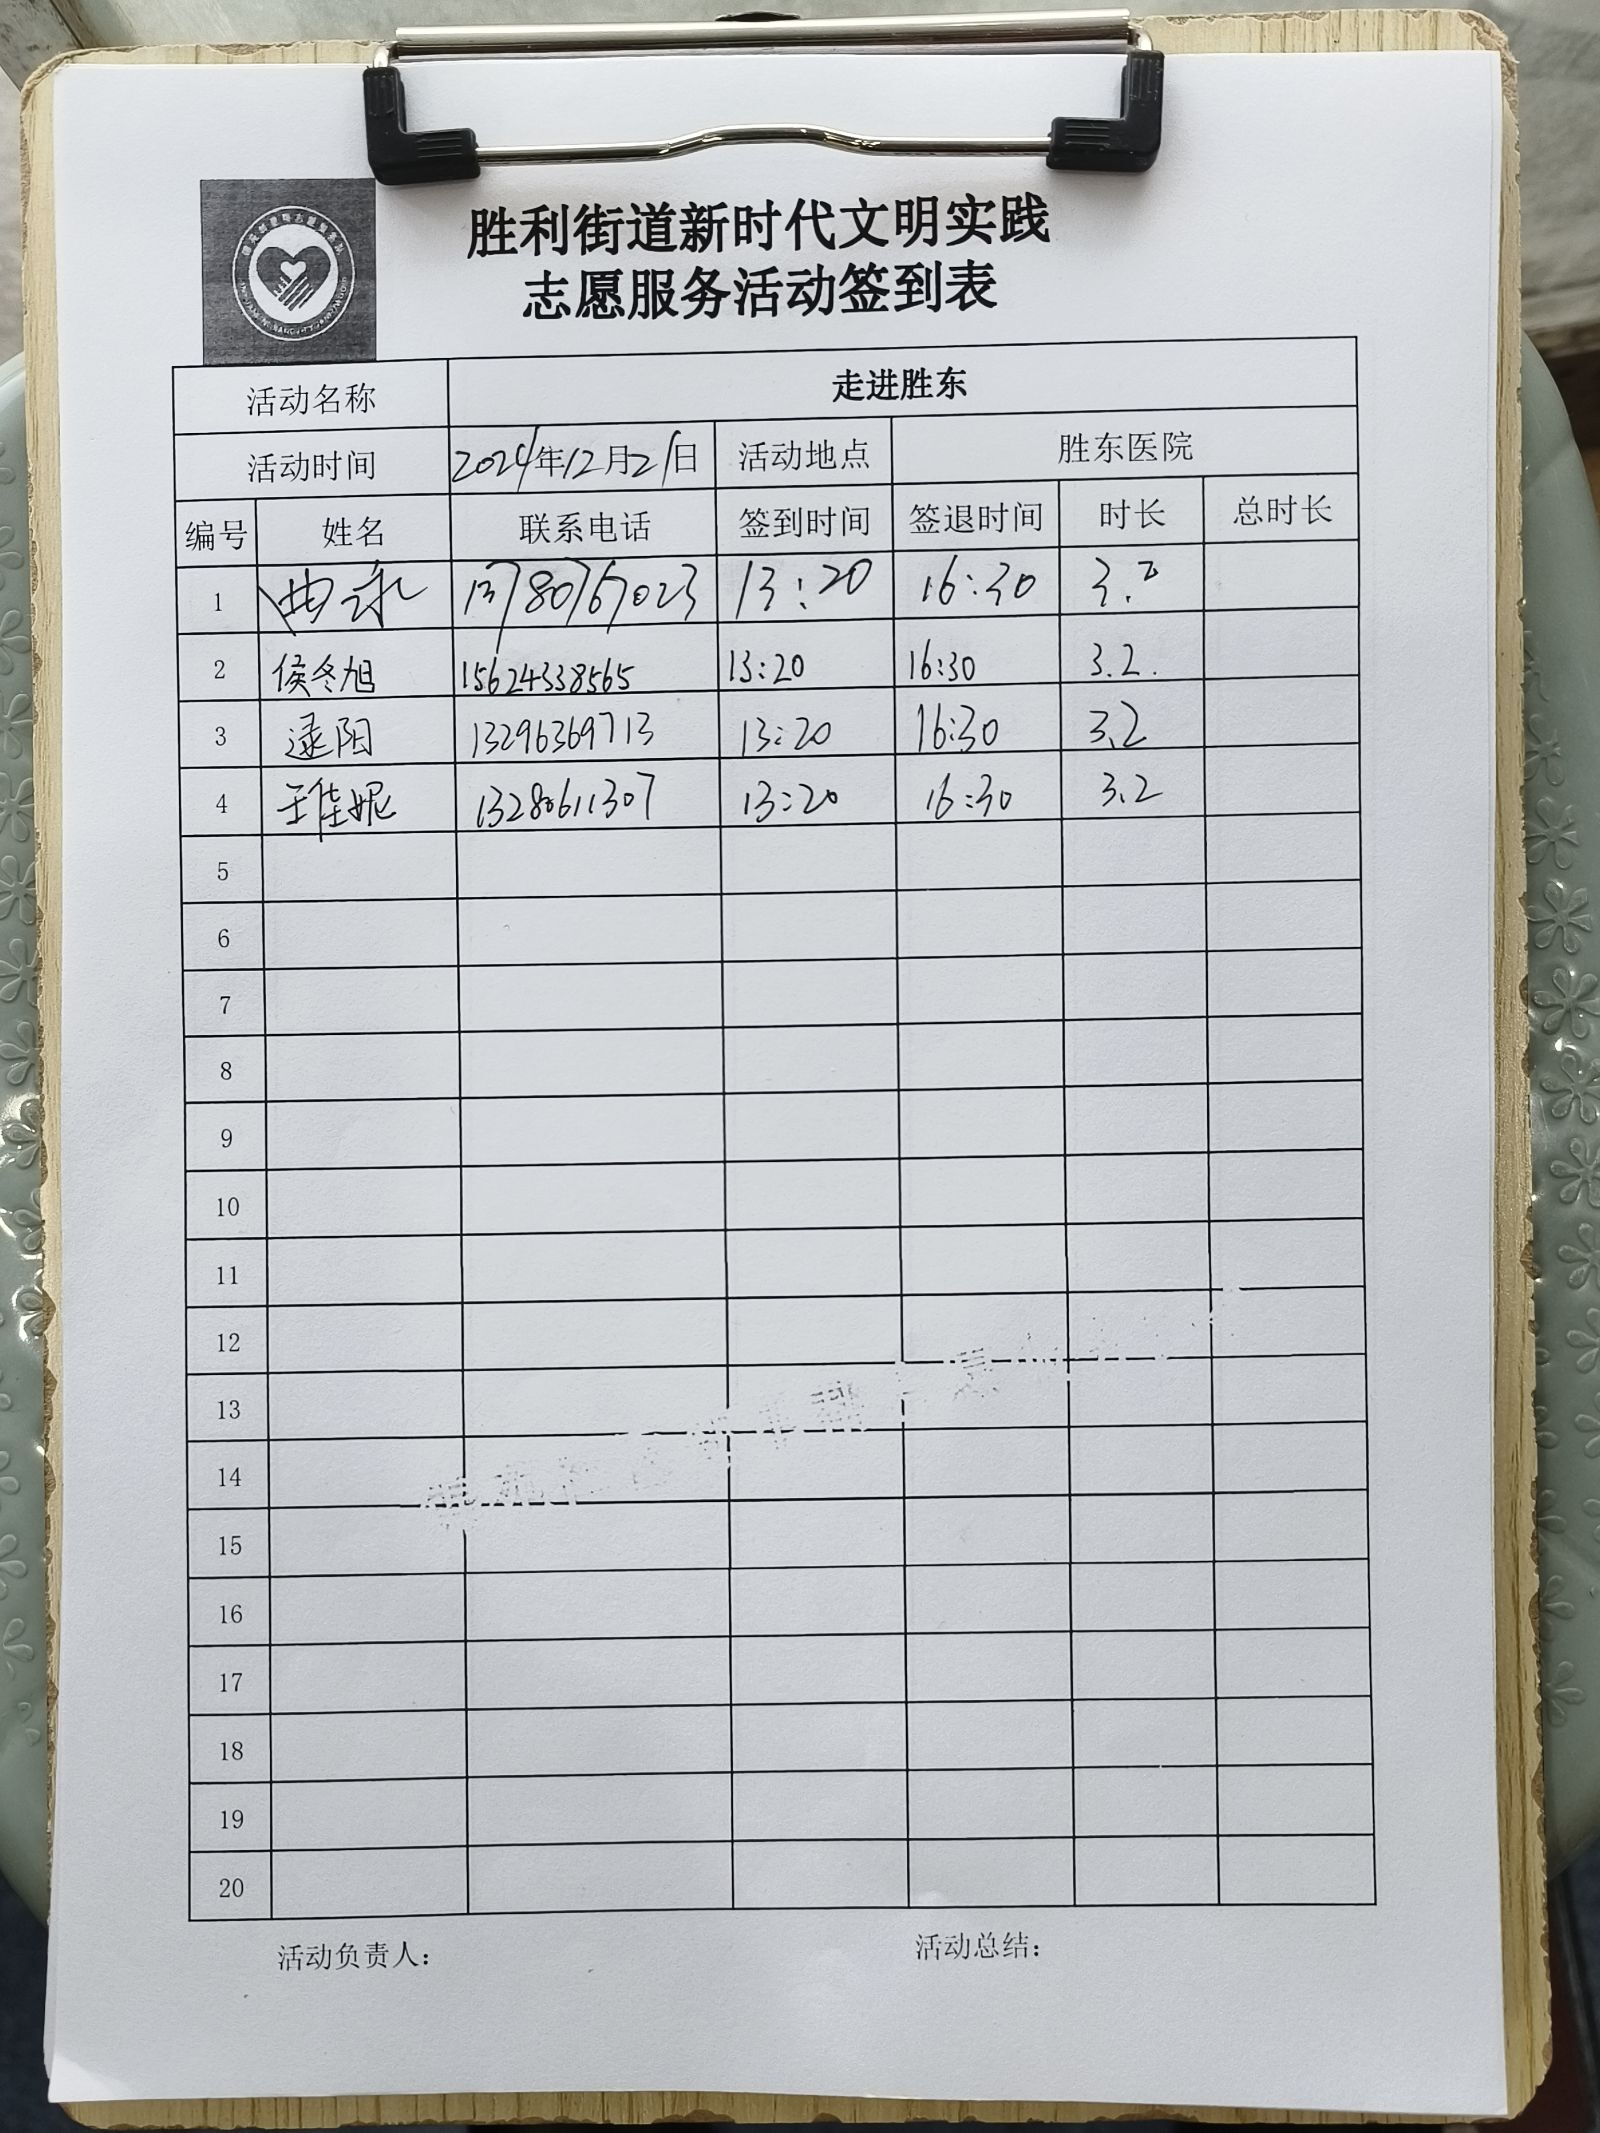 胜利街道新时代文明实践
志愿服务活动签到表
活动名称 走进胜东
活动时间 2024年12月21日 活动地点 胜东医院
编号 姓名 联系电话 签到时间 签退时间 时长 总时长
1 13780767023 13:20 16:30 3.2
2 侯冬旭 15624338565 13:20 16:30 3.2.
3 逯阳 13296369713 13:20 16:30 3.2
4 王佳妮 13280611307 13:20 16:30 3.2
5
6
7
8
9
10
11
12
13
14
15
16
17
18
19
20
活动负责人： 活动总结：